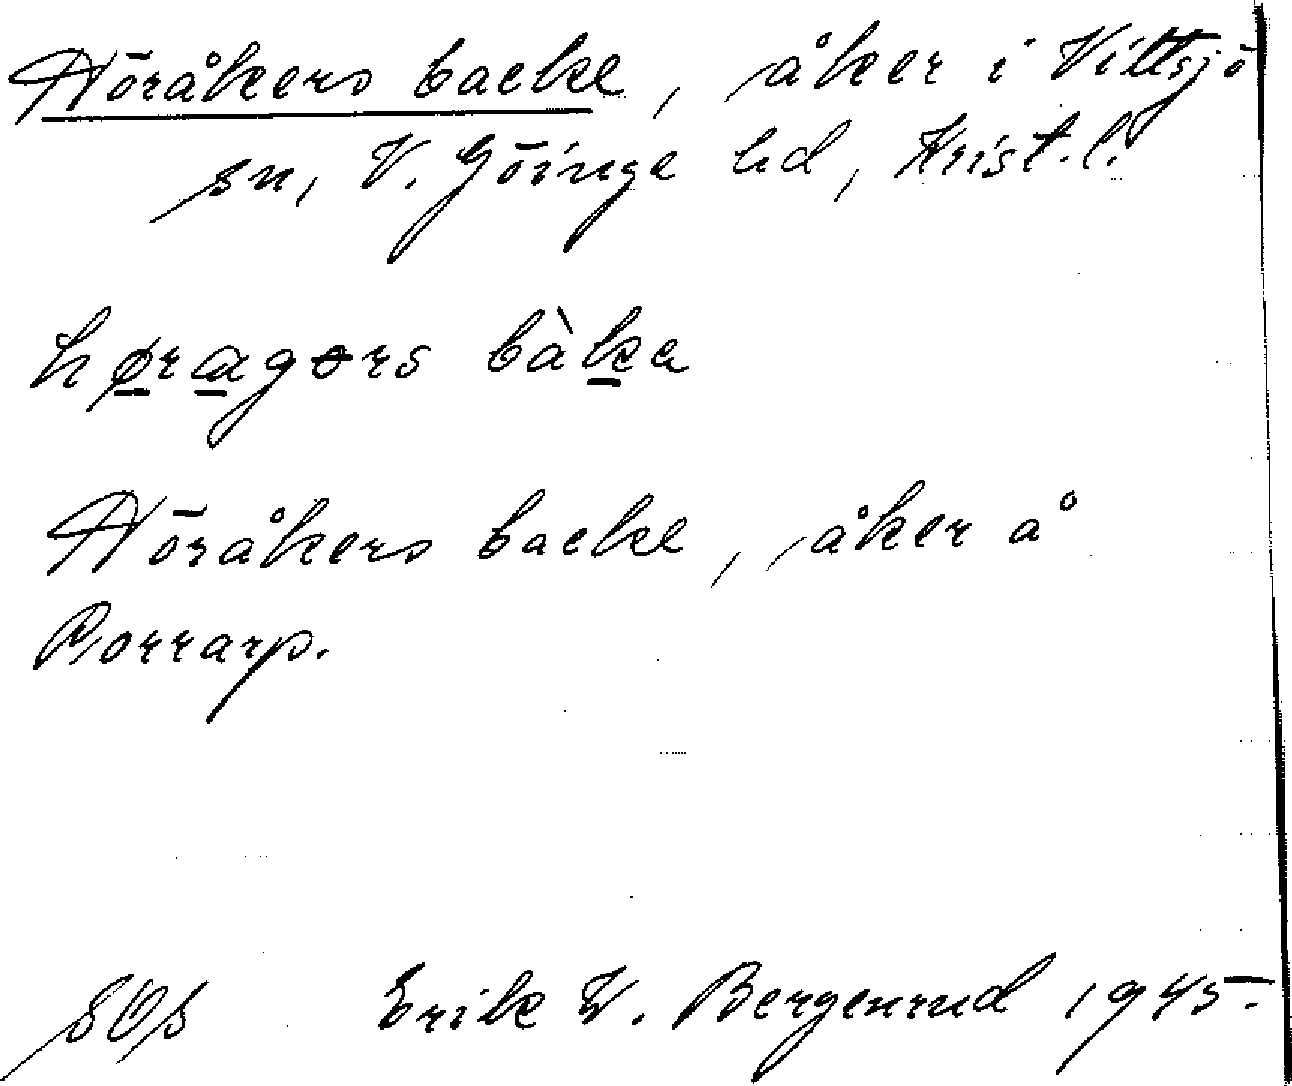 Höråkers backe, åker i Vittsjö
sn, V. Göinge hd, Krist. l.
høragərs bàka
Höråkers backe, åker å
Porrarp.
SOS Erik W. Bergenrud 1945.